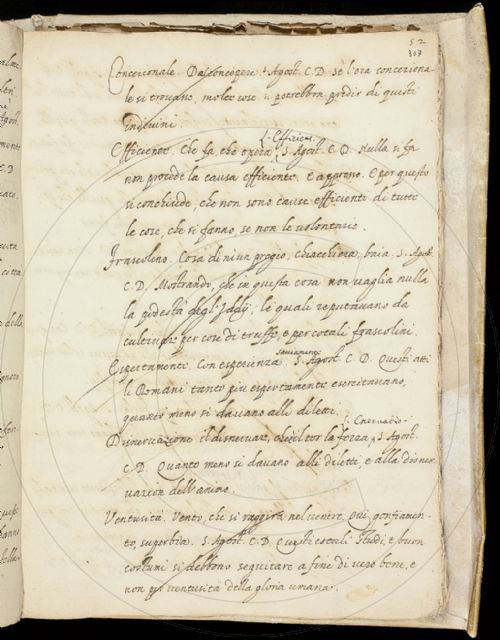 52
303
Concezionale. Da Concepere. S. Agost. C. D. se l'ora conceziona-
le si trovasse, molte cose potrebbon predir di questi
indivini.
Efficiente. Che fa, che opera. S. Agost. C. D. Nulla si fa
Efficiens.
non procede la causa efficiente. E appresso. E per questo
si conchiude, che non sono cause efficienti di tutte
le cose, che si fanno, se non le volontarie.
Frascolino. Cosa di niun pregio, chiacchiera, baia. S. Agost.
C. D. Mostrando, che in questa cosa non vaglia nulla
la podestà degl'Idoli, le quali reputavano da
per cose di truffe, e per cotali frascolini.
Espertamente. Con esperienza. S. Agost. C. D. Questi atti
saviamente
li Romani tanto più espertamente esercitavano,
quanto meno si davano alli diletti.
Disnervazione. il disnervare, che è il tor la forza. S. Agost.
Enervatio.
C. D. Quanto meno si davano alli diletti, e alla disner-
vazion dell'animo.
Ventusità. Vento, che si raggira nel ventre. Qui gonfiamen-
to, superbia. S. Agost. C. D. Questi cotali studi, e buon
costumi si debbono seguitare a fine di vero bene, e
non per ventusità della gloria umana.